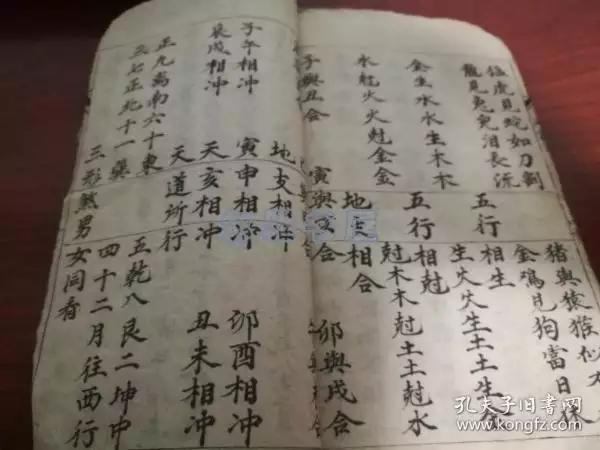 猛虎見蛇如刀剉 猪與猿猴似不
龍見兔兒泪長流 金鷄見狗當日休
五行 相生
金生水水生木木 生火火生土土生金
五行 相尅
水尅火火尅金金 尅木木尅土土尅水
地支 相合
子與丑合 寅與亥合 卯與戌合
地支相冲
子午相冲 寅申相冲 卯酉相冲
辰戌相冲 天亥相冲 丑未相冲
天道所行
正九离南六十東 五乾八艮二坤中
三七正北十一巽 四十二月往西行
三形煞男 女同看
孔夫子旧书网